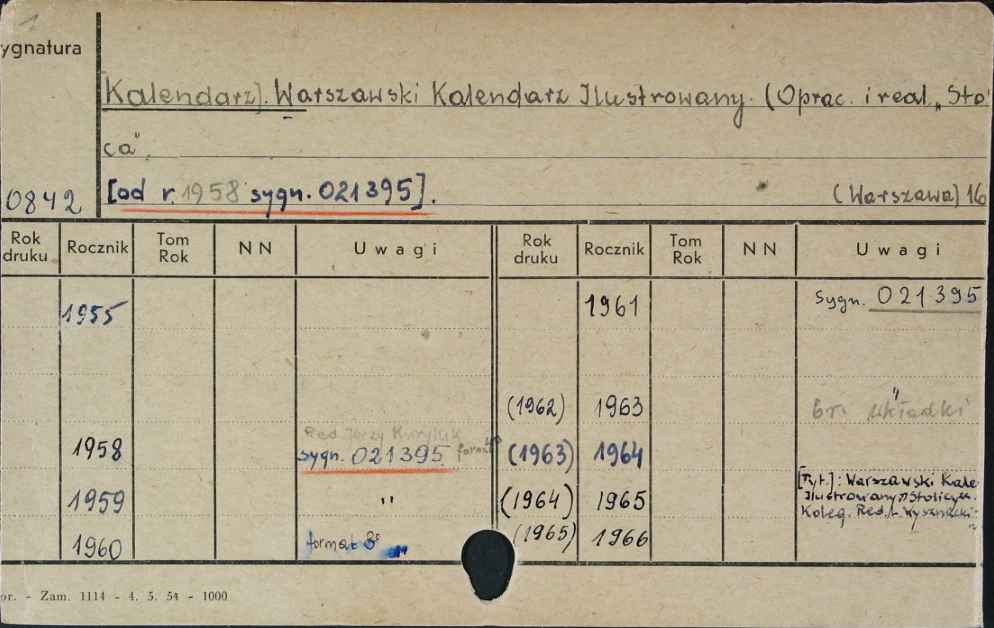 1
ygnatura
[Kalendarz]. Warszawski Kalendarz Ilustrowany. (Oprac. i real. „Sto
ca"
0842 [od r. 1958 sygn. 021395]. (Warszawa) 16
Rok druku Rocznik Tom Rok NN Uwagi Rok druku Rocznik Tom Rok NN Uwagi
1955 1961 Sygn. 021395
(1962) 1963 "
br. okładki
Red. Jerzy
1958 sygn. 021395 format (1963) 1964
1959 " (1964) 1965 [Tyt.]: Warszawski Kale
Ilustrowany "Stolicy".
Koleg. Red.
1960 format 8° (1965) 1966 "
or. - Zam. 1114 - 4. 5. 54 - 1000